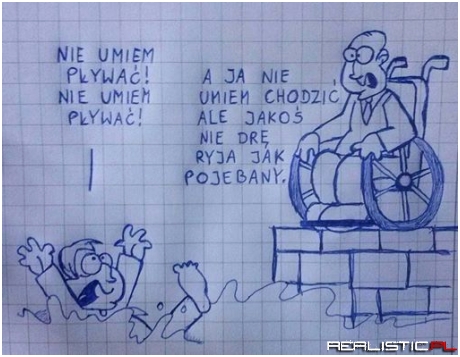 NIE UMIEM
PŁYWAĆ!
NIE UMIEM
PŁYWAĆ!
A JA NIE
UMIEM CHODZIĆ
ALE JAKOŚ
NIE DRĘ
RYJA JAK
POJEBANY.
REALISTIC.PL